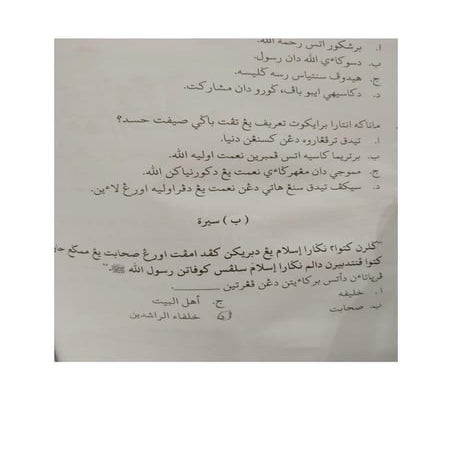 ا. برشكور اتس رحمة الله.
ب. دسوكاءي الله دان رسول.
ج. هيدوڤ سنتياس رسه ݢليسه.
د. دكاسيهي ايبو باڤ، ݢورو دان مشاركت.
ماناكه انتارا برايكوت تعريف يڠ تڤت باݢي صيفت حسد؟
ا. تيدق ترڤڠاروه دڠن كسنڠن دنيا.
ب. برتريما كاسيه اتس ڤمبرين نعمت اوليه الله.
ج. مموجي دان مڠهرݢاءي نعمت يڠ دكورنياكن الله.
د. سيكڤ تيدق سنڠ هاتي دڠن نعمت يڠ دڤراوليه اورڠ لاءين.
( ب ) سيرة
"ݢلرن كتوا٢ نݢارا إسلام يڠ دبريكن كڤد امڤت اورڠ صحابت يڠ
كتوا ڤنتدبيرن دالم نݢارا إسلام سلڤس كوفاتن رسول الله ﷺ."
ڤرڽاتاءن داتس بركاءيتن دڠن ڤڠرتين ________.
ا. خليفه ج. أهل البيت
ب. صحابت د. خلفاء الراشدين